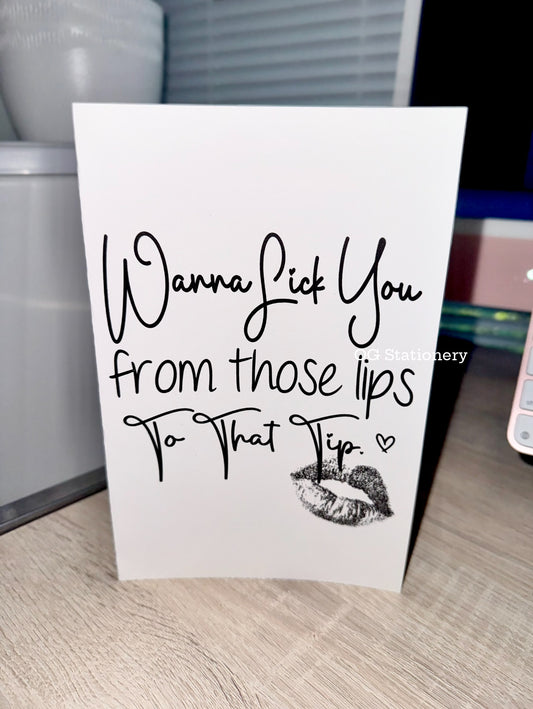 Wanna Lick You
OG Stationery
from those lips
To That Tip. ♡